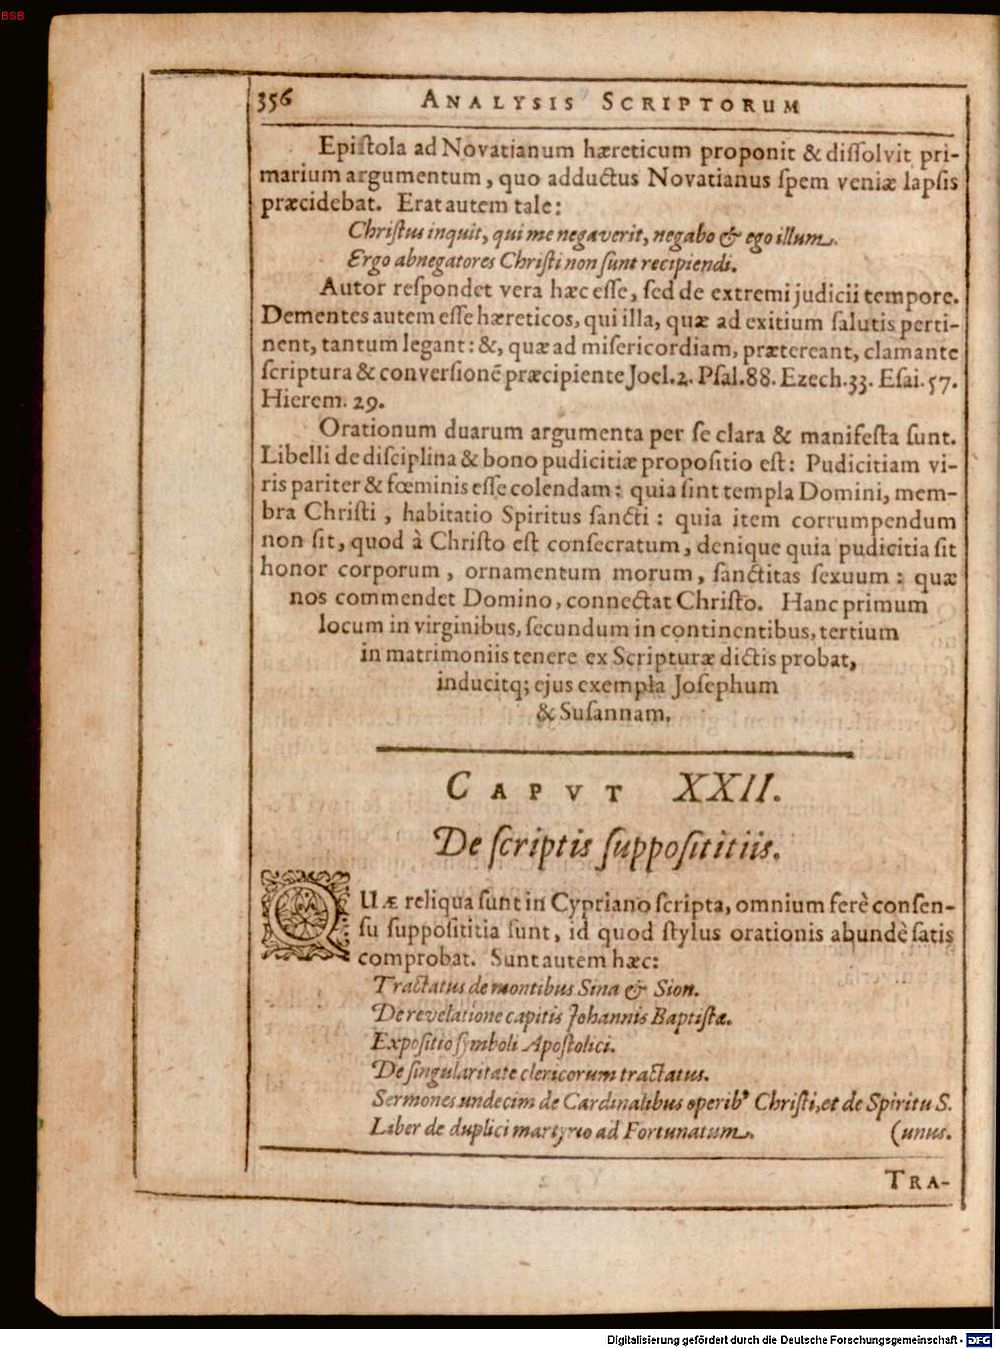 BSB
356 ANALYSIS SCRIPTORUM
Epiſtola ad Novatianum hæreticum proponit & diſſolvit pri-
marium argumentum, quo adductus Novatianus ſpem veniæ lapſis
præcidebat. Erat autem tale:
Chriſtus inquit, qui me negaverit, negabo & ego illum.
Ergo abnegatores Chriſti non ſunt recipiendi.
Autor reſpondet vera hæc eſſe, ſed de extremi judicii tempore.
Dementes autem eſſe hæreticos, qui illa, quæ ad exitium ſalutis perti-
nent, tantum legant: &, quæ ad miſericordiam, prætereant, clamante
ſcriptura & converſionē præcipiente Joel.2. Pſal.88. Ezech.33. Eſai.57.
Hierem. 29.
Orationum duarum argumenta per ſe clara & manifeſta ſunt.
Libelli de diſciplina & bono pudicitiæ propoſitio eſt: Pudicitiam vi-
ris pariter & fœminis eſſe colendam: quia ſint templa Domini, mem-
bra Chriſti, habitatio Spiritus ſancti: quia item corrumpendum
non ſit, quod à Chriſto eſt conſecratum, denique quia pudicitia ſit
honor corporum, ornamentum morum, ſanctitas ſexuum: quæ
nos commendet Domino, connectat Chriſto. Hanc primum
locum in virginibus, ſecundum in continentibus, tertium
in matrimoniis tenere ex Scripturæ dictis probat,
inducitq; ejus exempla Joſephum
& Suſannam.
CAPVT XXII.
De ſcriptis ſuppoſititiis.
QUÆ reliqua ſunt in Cypriano ſcripta, omnium ferè conſen-
ſu ſuppoſititia ſunt, id quod ſtylus orationis abundè ſatis
comprobat. Sunt autem hæc:
Tractatus de montibus Sina & Sion.
De revelatione capitis Johannis Baptiſtæ.
Expoſitio ſymboli Apoſtolici.
De ſingularitate clericorum tractatus.
Sermones undecim de Cardinalibus operib⁹ Chriſti, et de Spiritu S.
Liber de duplici martyrio ad Fortunatum. (unus.
TRA-
Digitalisierung gefördert durch die Deutsche Forschungsgemeinschaft - DFG